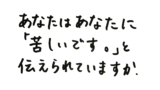 あなたはあなたに
「苦しいです。」と
伝えられていますか.